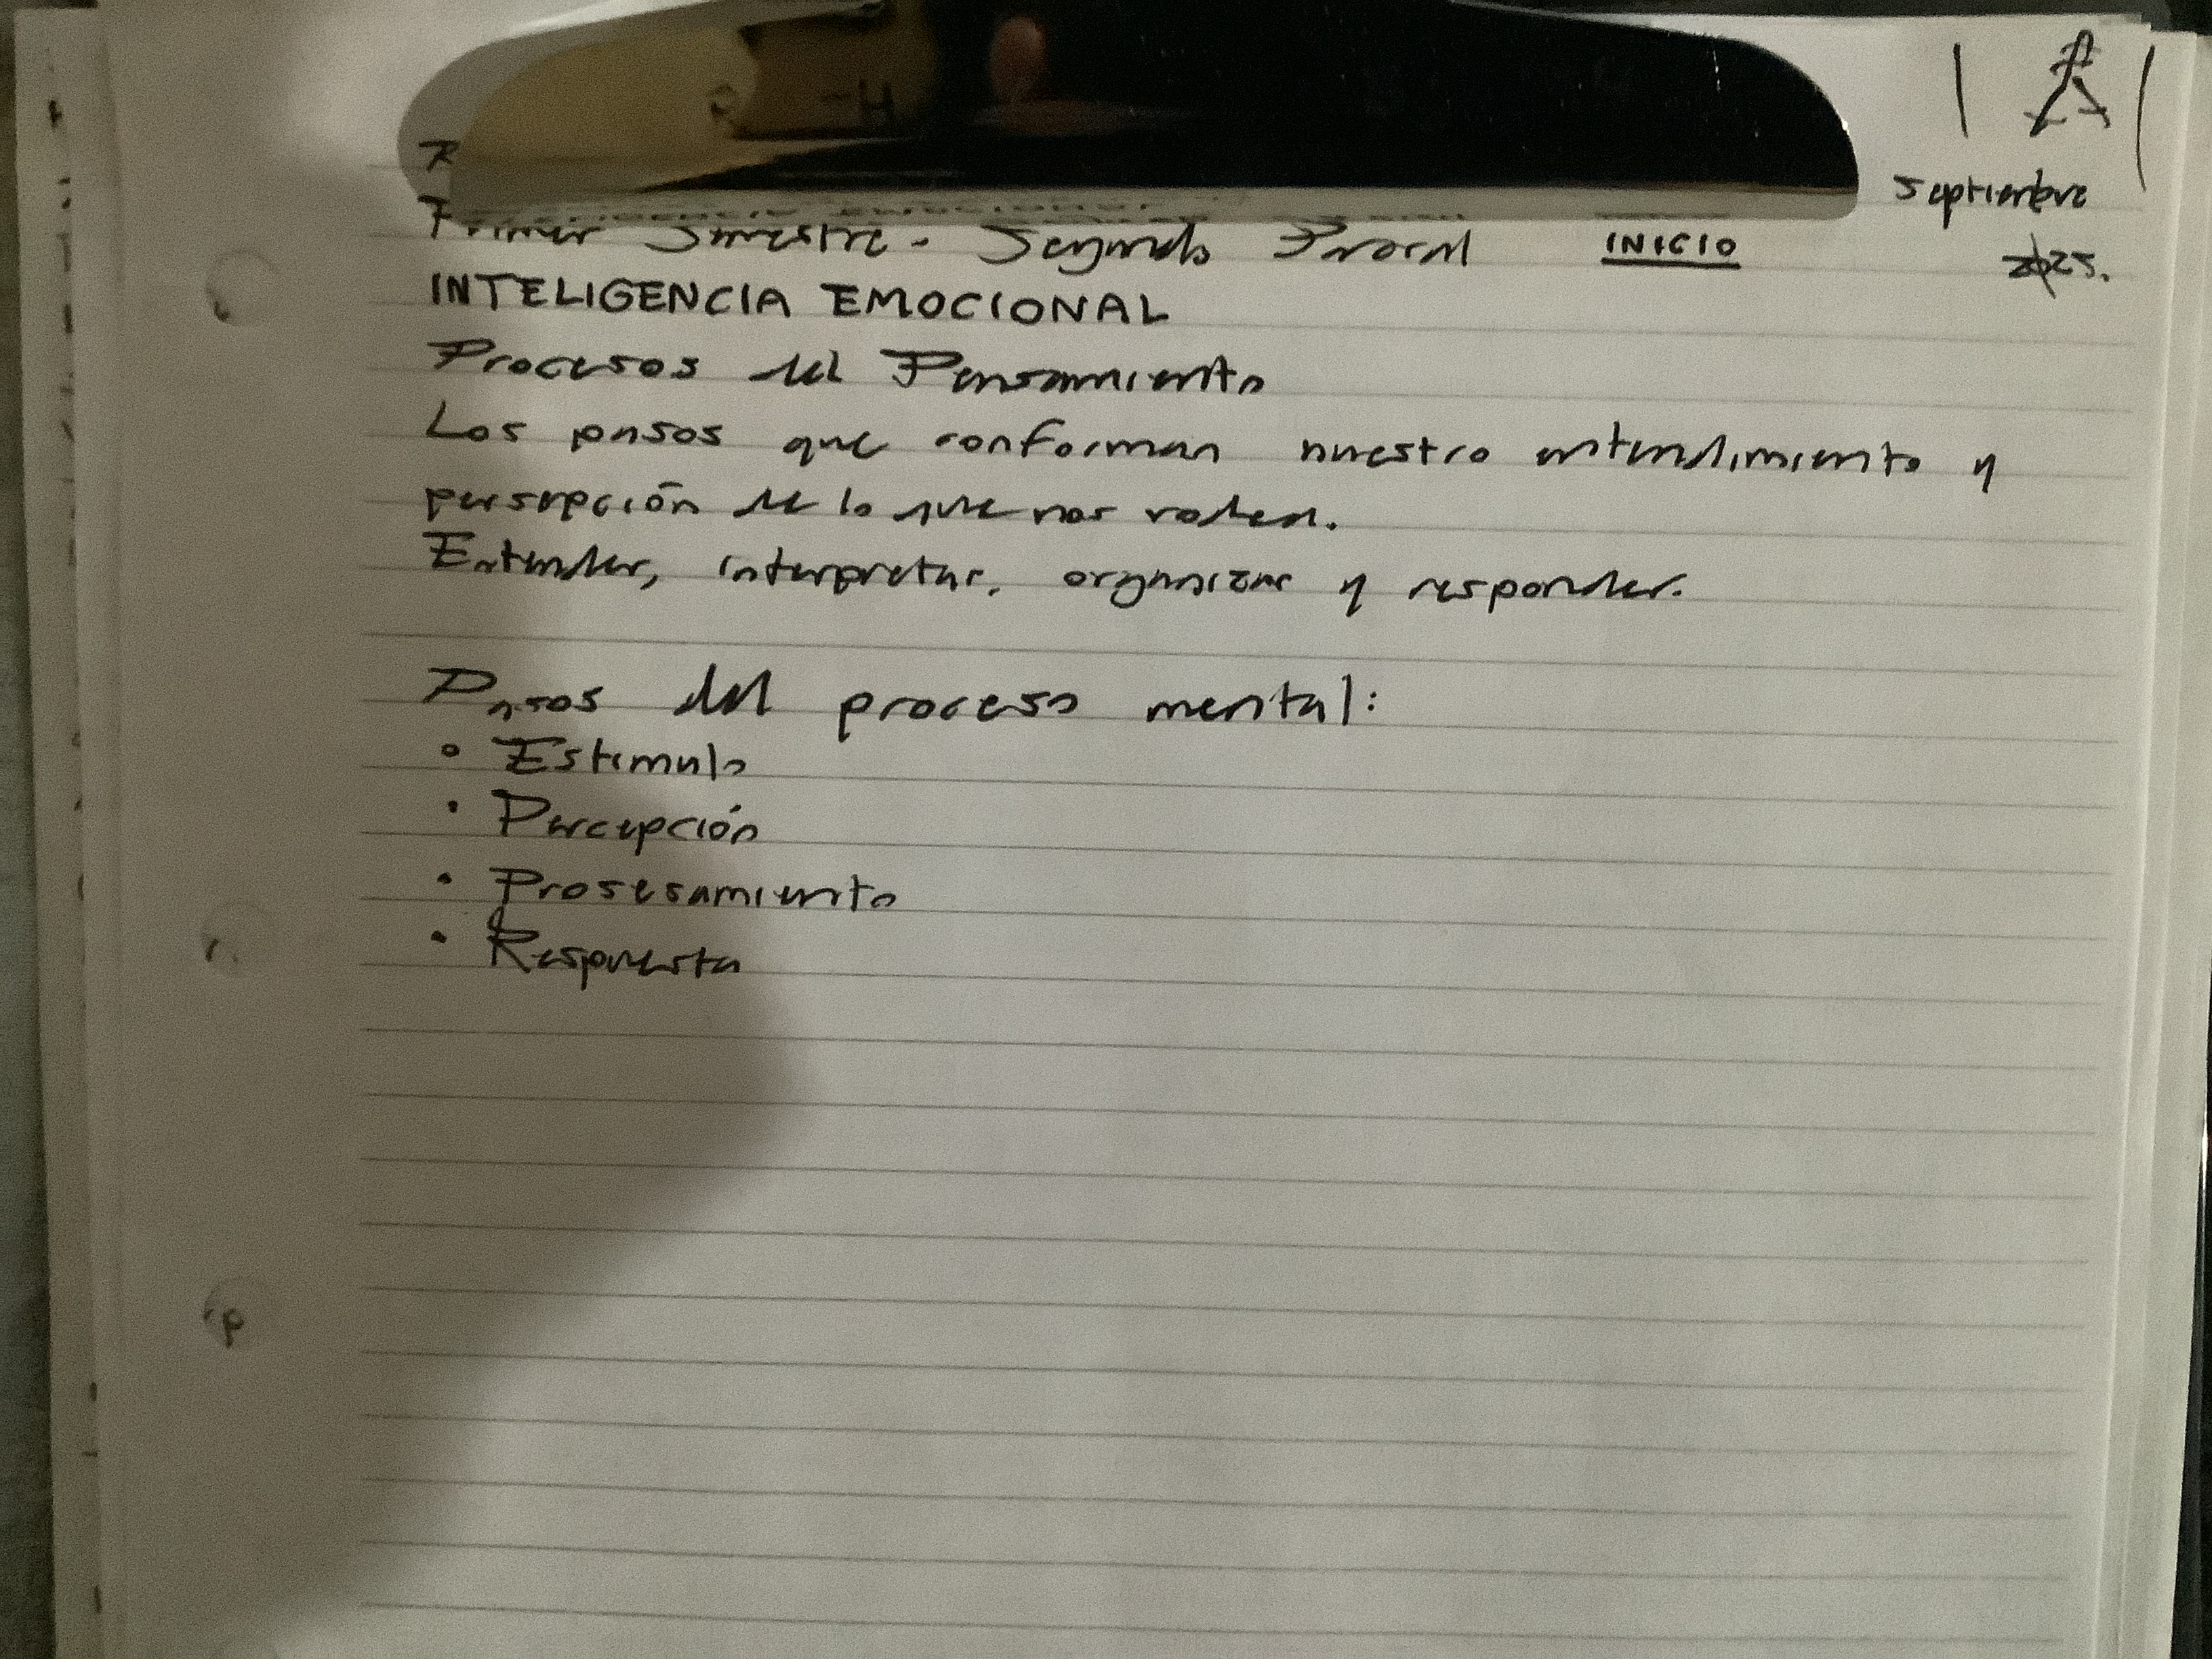 Septiembre
Primer Semestre - Segundo Parcial INICIO
2025.
INTELIGENCIA EMOCIONAL
Procesos del Pensamiento
Los pasos que conforman nuestro entendimiento y
persepción de lo que nos rodea.
Entender, interpretar, organizar y responder.
Pasos del proceso mental:
• Estimulo
• Percepción
• Prosesamiento
• Respuesta